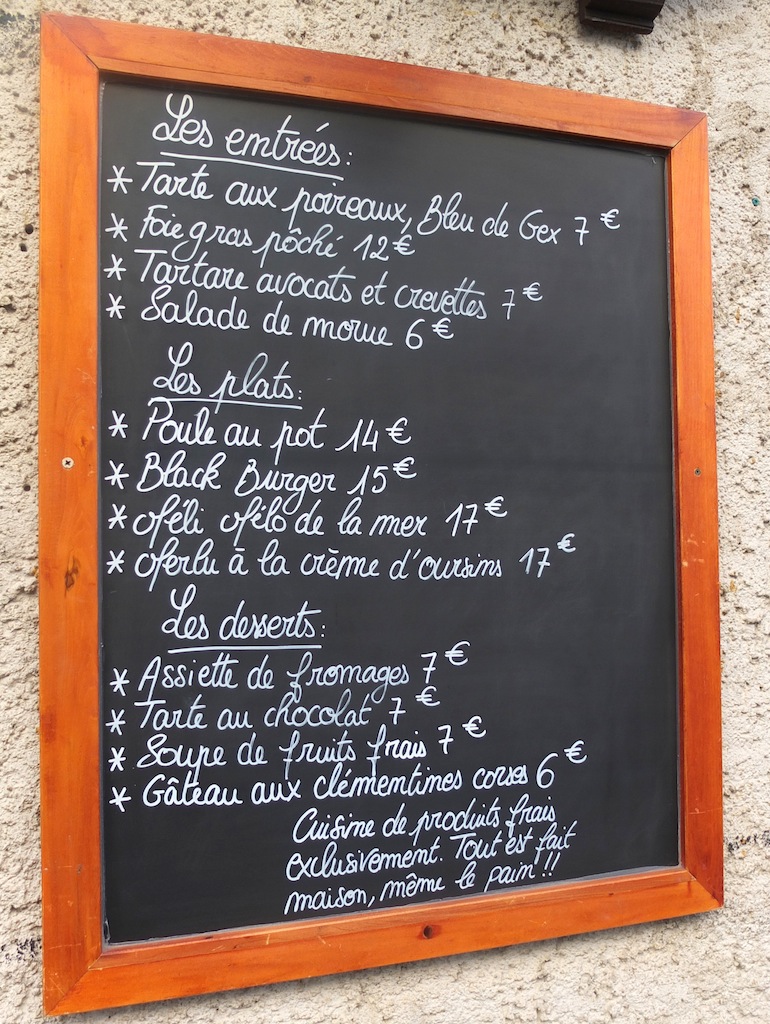 Les entrées:
* Tarte aux poireaux, Bleu de Gex 7 €
* Foie gras pôché 12 €
* Tartare avocats et crevettes 7 €
* Salade de morue 6 €
Les plats:
* Poule au pot 14 €
* Black Burger 15 €
* Oféli ofélo de la mer 17 €
* Oferlu à la crème d'oursins 17 €
Les desserts:
* Assiette de fromages 7 €
* Tarte au chocolat 7 €
* Soupe de fruits frais 7 €
* Gâteau aux clémentines corses 6 €
Cuisine de produits frais
exclusivement. Tout est fait
maison, même le pain !!